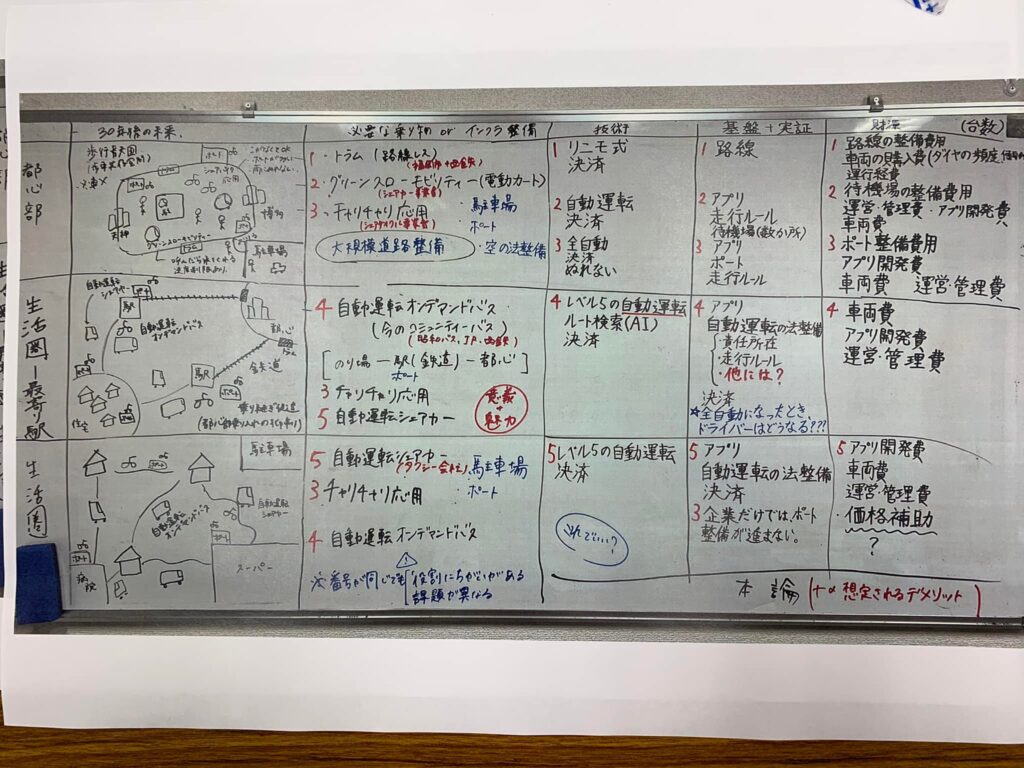 30年後の未来.
必要な乗り物 or インフラ整備
技術
基盤+実証
財源
(台数)
都心部
歩行者天国
ポート
シェアサイクル
応用
博多
天神
グリーンスローモビリティー
駐車場
1・トラム (路線レス)
2・グリーンスローモビリティー(電動カート)
(シェアカー事業者)
3・チャリチャリ応用
・駐車場
(シェアサイクル事業者)
ポート
大規模道路整備
・空の法整備
1 リニモ式
決済
2 自動運転
決済
3 全自動
決済
ぬれない
1 路線
2 アプリ
走行ルール
待機場(数か所)
3 アプリ
ポート
走行ルール
1 路線の整備費用
車両の購入費(ダイヤの頻度
運行経費
2 待機場の整備費用
運営・管理費・アプリ開発費
車両費
3 ポート整備費用
アプリ開発費
車両費 運営・管理費
生活圏ー最寄り駅
自動運転
シェアカー
駅
自動運転
オンデマンドバス
都心
鉄道
駅
住宅
乗り継ぎ促進
4 自動運転オンデマンドバス
(今のコミュニティーバス)
(昭和バス、JR、西鉄)
[のり場ー駅(鉄道)ー都心]
ポート
3 チャリチャリ応用
5 自動運転シェアカー
意義
+
魅力
4 レベル5の自動運転
ルート検索(AI)
決済
4 アプリ
自動運転の法整備
・責任所在
・走行ルール
・他には?
決済
☆全自動になったとき、
ドライバーはどうなる???
4 車両費
アプリ開発費
運営・管理費
生活圏
駐車場
自動運転
シェアカー
自動運転
オンデマンドバス
ポート
病院
スーパー
5 自動運転シェアカー
(タクシー会社)
・駐車場
3 チャリチャリ応用
・ポート
4 自動運転オンデマンドバス
※番号が同じでも
役割にちがいがある
課題が異なる
5 レベル5の自動運転
決済
どれでいい?
5 アプリ
自動運転の法整備
決済
3 企業だけでは、ポート
整備が進まない。
5 アプリ開発費
車両費
運営・管理費
・価格補助
?
本論 (+α 想定されるデメリット)